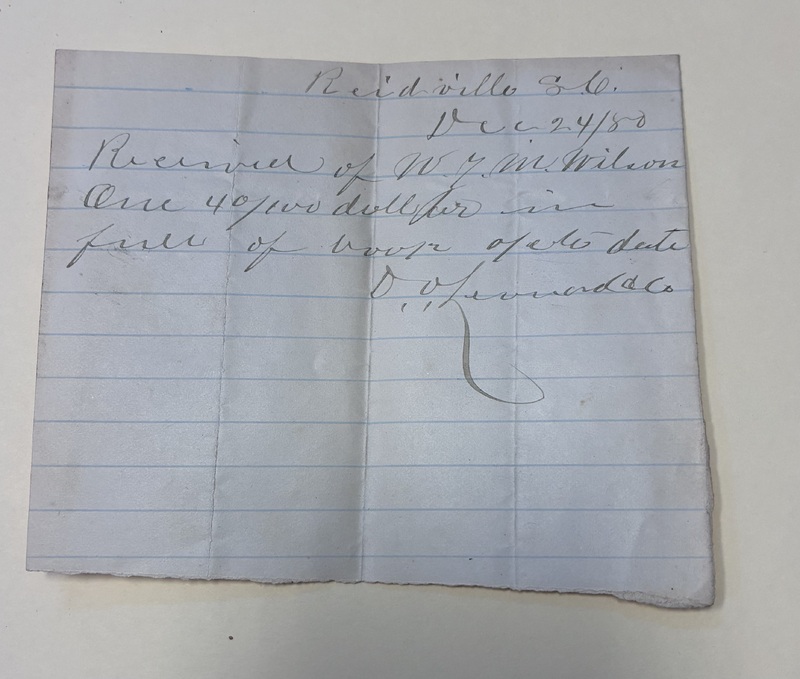 Reidville S.C.
Dec 24/80
Received of W. T. M. Wilson
One 40/100 dollars in
full of book a/c to date
D. D. Leonard & Co